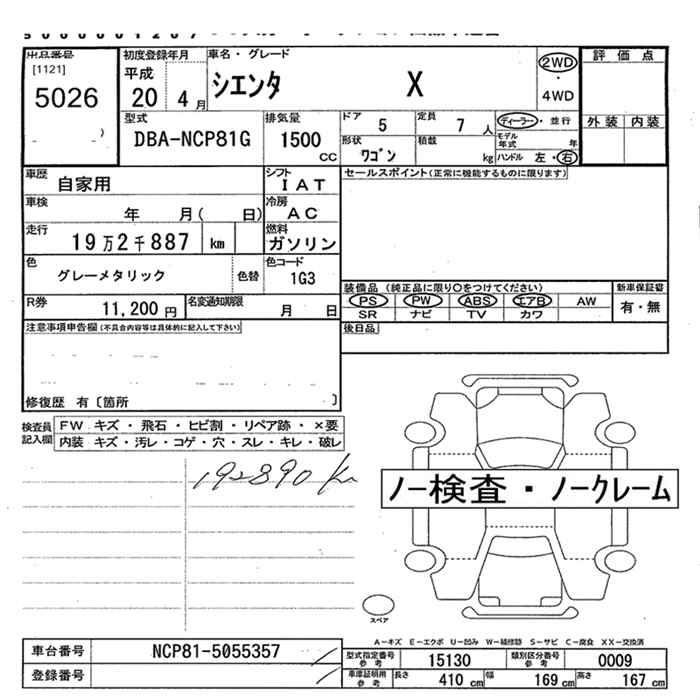 出品番号 初度登録年月 車名・グレード 評価点
[1121] 平成 シエンタ X 2WD
5026 20 4月 ・ 4WD
型式 排気量 ドア 定員 ディーラー・並行 外装 内装
DBA-NCP81G 1500 CC 5 7 人 モデル年式 年
形状 積載
ワゴン kg ハンドル 左・右
車歴 自家用 シフト IAT セールスポイント(正常に機能するものに限ります)
車検 年 月( 日) 冷房 AC
走行 19万2千887 km 燃料 ガソリン
色 グレーメタリック 色替 色コード 1G3
装備品(純正品に限り○をつけてください) 新車保証書
R券 11,200円 名変通知期限 月 日 PS PW ABS エアB AW 有・無
SR ナビ TV カワ
注意事項申告欄(不具合内容等は具体的に記入して下さい) 後日品
修復歴 有〔箇所 〕
検査員記入欄 FW キズ・飛石・ヒビ割・リペア跡・×要
内装 キズ・汚レ・コゲ・穴・スレ・キレ・破レ
192890 Km
ノー検査・ノークレーム
スペア
A-キズ E-エクボ U-凹み W-補修跡 S-サビ C-腐食 XX-交換済
車台番号 NCP81-5055357 型式指定番号 参考 15130 類別区分番号 参考 0009
登録番号 車庫証明用 参考 長さ 410 cm 幅 169 cm 高さ 167 cm